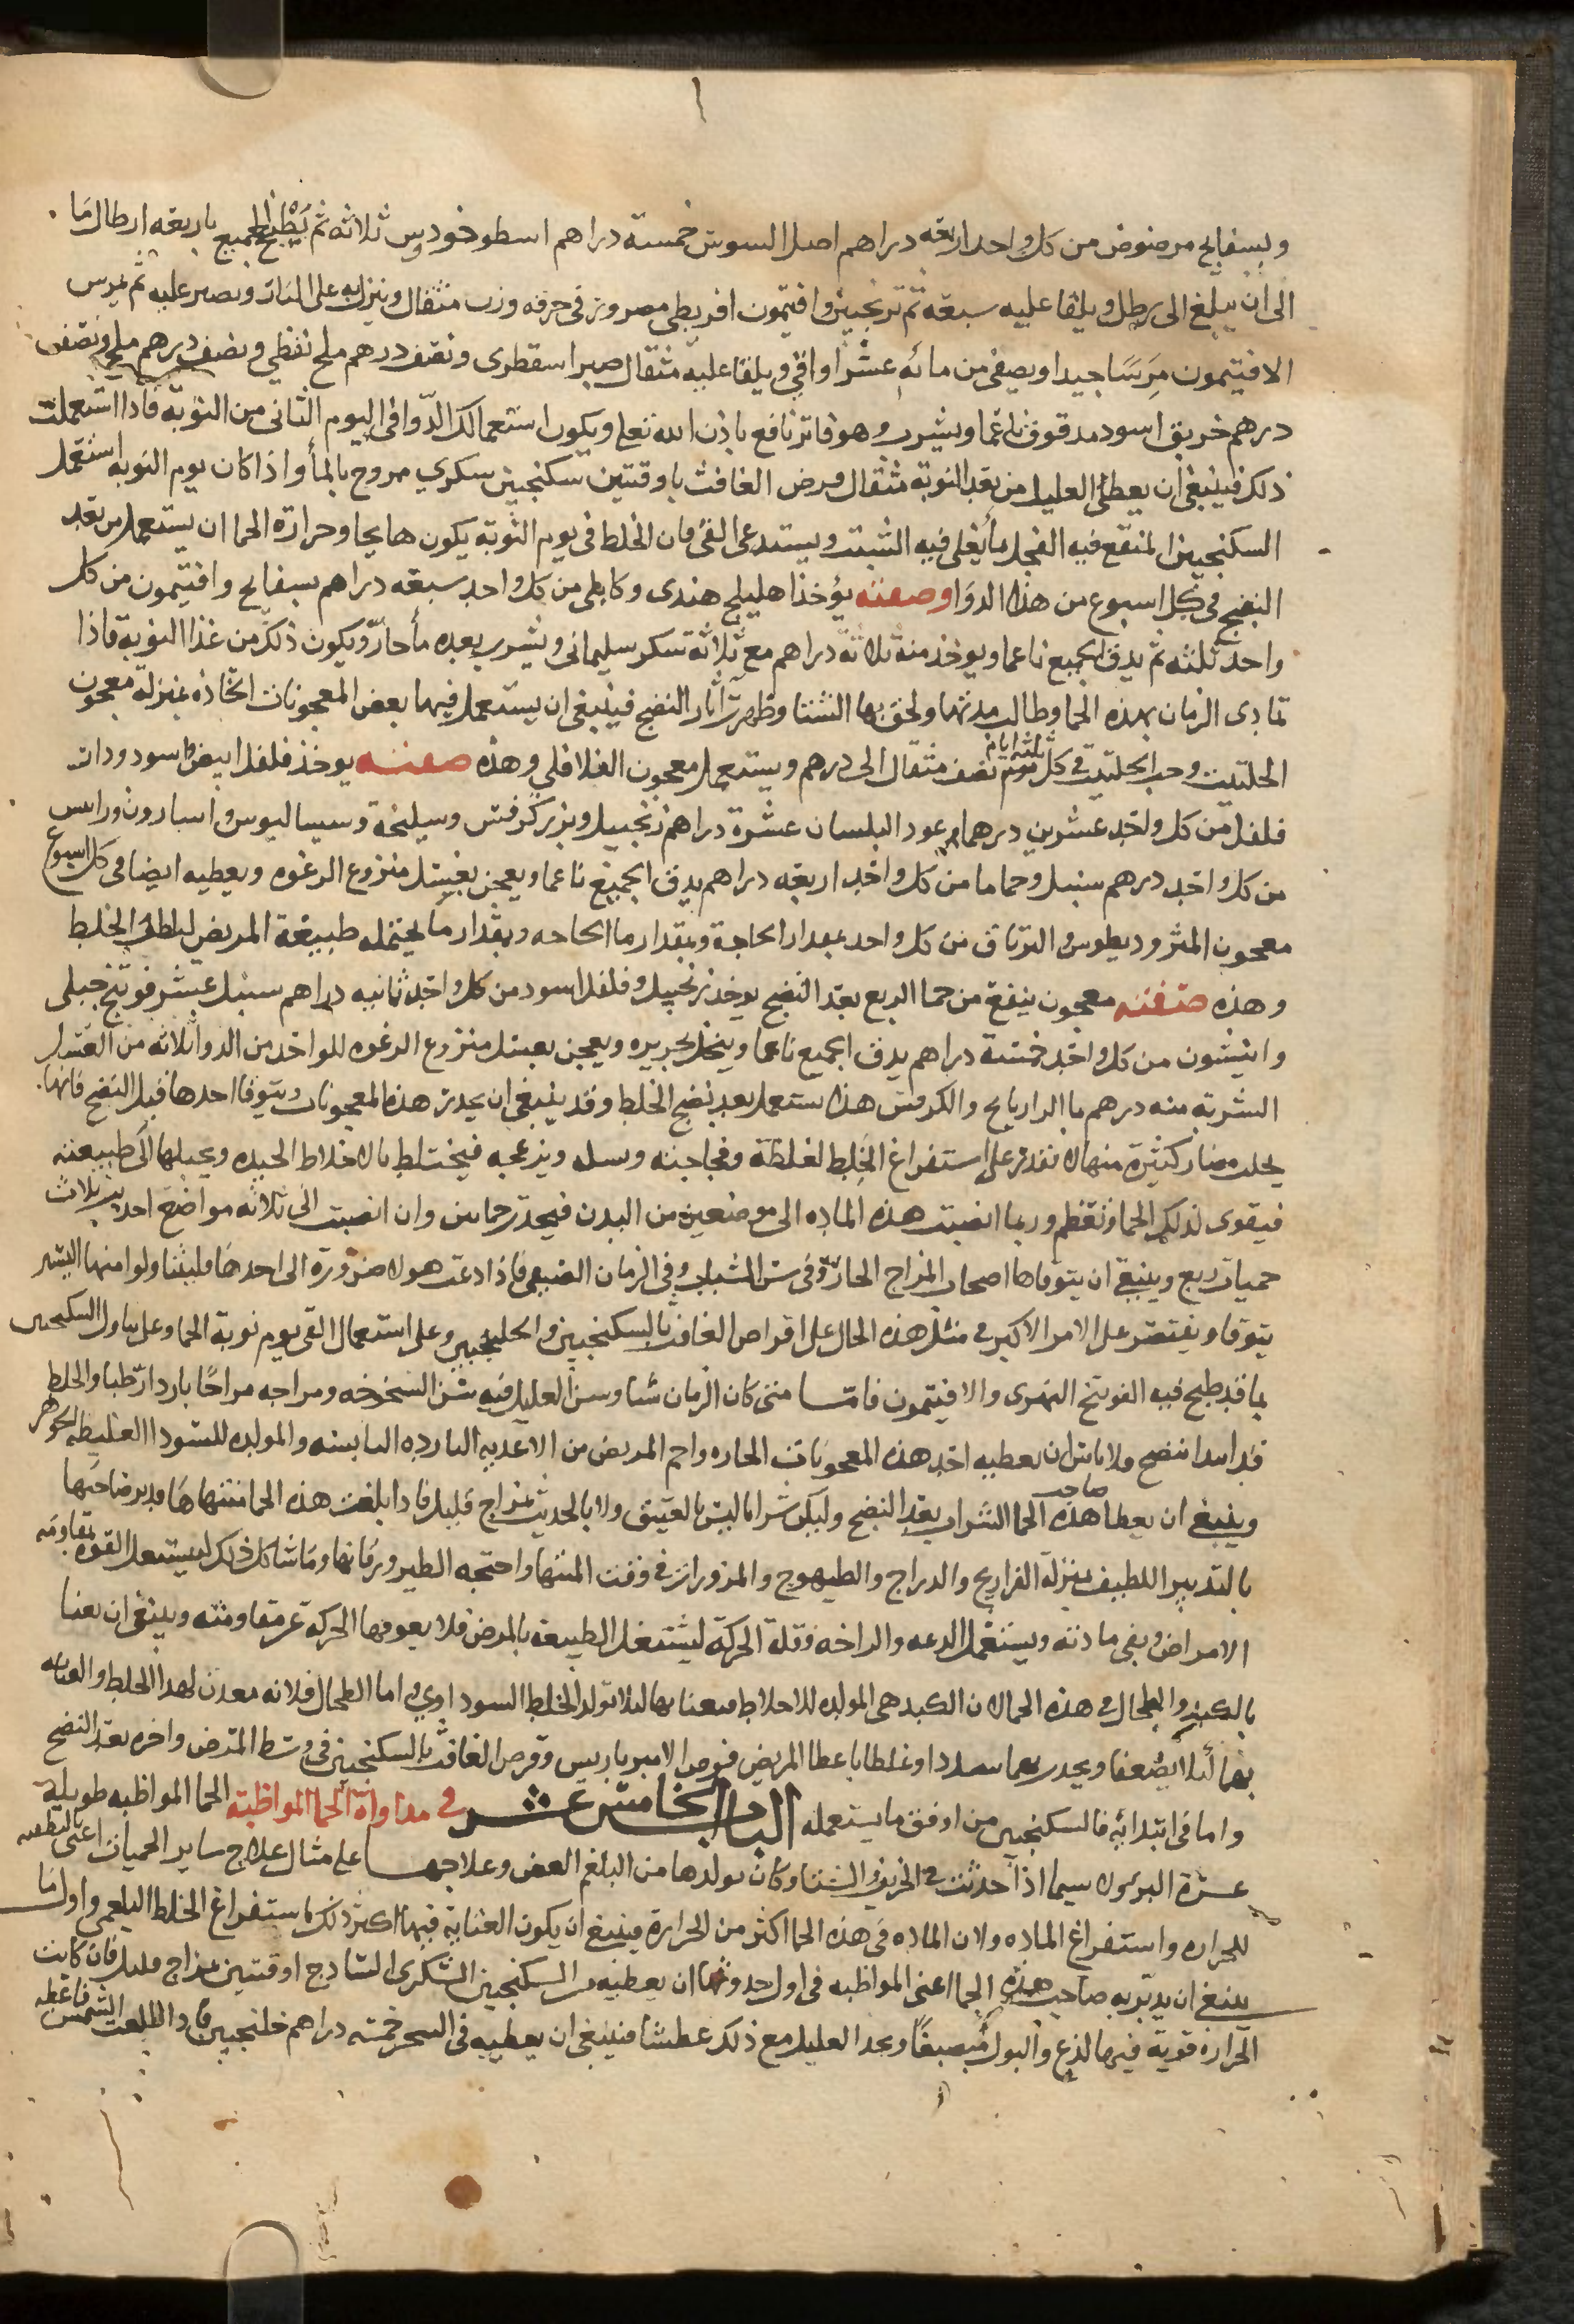 وبسفايج مرضوض من كل واحد اربعة دراهم اصل السوس خمسة دراهم اسطوخودوس ثلاثه ثم يطبخ الجميع باربعه ارطال ما
الى ان يبلغ الى رطل ويلقا عليه سبعة ترنجبين وافتيمون اقريطى مصرور فى خرقه وزن مثقال وينزل به على النار ويصبر عليه ثم يمرس
الافتيمون مرسا جيدا ويصفى من مائه عشر اواقى ويلقا عليه مثقال صبر اسقطرى ونصف درهم ملح نفطي ونصف درهم ملح ونصف
درهم خربق اسود مدقوق ناعما ويشرب وهو فاتر نافع باذن الله تعلى ويكون استعمالك الدوا فى اليوم الثانى من النوبة فاذا استعملت
ذلك فينبغى ان يعطى العليل من بعد النوبة مثقال قرص الغافث باوقتين سكنجبين سكري ممروج بالمأ واذا كان يوم النوبه استعمل
السكنجبين المنقع فيه الفجل بما يغلى فيه الشبت ويستدعى القئ فان الخلط فى يوم النوبة يكون هايجا وحرارة الحما ان يستعمل من بعد
النضج فى كل اسبوع من هذا الدوا وصفته يؤخذ اهليلج هندى وكابلى من كل واحد سبعه دراهم بسفايج وافتيمون من كل
واحد ثلثه ثم يدق الجميع ناعما ويوخذ منه ثلاثة دراهم مع ثلاثة سكر سليمانى ويشرب بعده مأ حار ويكون ذلك من غذا النوبة فاذا
تمادى الزمان بهذه الحما وطالت مدتها ولحق بها الشتا وظهرت آثار النضج فينبغى ان يستعمل فيها بعض المعجونات الحاده بمنزلة معجون
الحلتيت وحب الحلتيت فى كل ثلثه ايام نصف مثقال الى درهم ويستعمل معجون الفلافلي وهذه صفته يوخذ فلفل ابيض واسود ودار
فلفل من كل واحد عشرين درهما وعود البلسان عشرة دراهم زنجبيل وبزر كرفس وسليخة وسيساليوس واسارون وراسن
من كل واحد درهم سنبل وحماما من كل واحد اربعه دراهم يدق الجميع ناعما ويعجن بعسل منزوع الرغوه ويعطيه ايضا فى كل اسبوع
معجون المثروديطوس والترياق من كل واحد بمقدار الحاجة وبمقدار ما الحاجه وبمقدار ما يحتمله طبيعة المريض ليلطف الخلط
وهذه صفته معجون ينفع من حما الربع بعد النضج يوخذ زنجبيل وفلفل اسود من كل واحد ثمانيه دراهم سنبل عشر فوتنج جبلى
وانيسون من كل واحد خمسة دراهم يدق الجميع ناعما وينخل بحريره ويعجن بعسل منزوع الرغوه للواحد من الدوا ثلاثه من العسل
الشربة منه درهم بما الرازيانج والكرفس هذا يستعمل بعد نضج الخلط وقد ينبغى ان يحذر هذه المعجونات ويتوقا احدها قبل النضج فانها
يجلب مضار كثيرة منها لا تقدر على استفراغ الخلط لغلظة وفجاجته وينزعجه فيختلط بالاخلاط الجيده ويحيلها الى طبيعته
فيقوى لذلك الحما وتعظم وربما انصبت هذه الماده الى موضعين من البدن فيحدث حماتين وان انصبت الى ثلاثه مواضع احدثت ثلاث
حميات ربع وينبغي ان يتوقاها اصحاب المزاج الحار وفى سن الشباب وفى الزمان الصيفى فاذا دعت هولا ضرورة الى احدها فليتناولوا منها اليسير
يتوقا ويقتصر على الامر الاكبر فى مثل هذه الحال على اقراص الغافث بالسكنجبين والجلنجبين وعلى استعمال القى يوم نوبة الحما وعلى تناول السكنجبين
بما قد طبخ فيه الفوتنج النهرى والافتيمون فاما متى كان الزمان شتا وسن العليل فيه سن الشيخوخه ومزاجه مزاجا باردا رطبا والخلط
قد ابتدا نضج فلا باس ان يعطيه احد هذه المعجونات الحاره واحم المريض من الاغذيه البارده اليابسه والمولده للسودا الغليظه الجوهر
وينبغي ان يعطا صاحب هذه الحما الشراب بعد النضج وليكن شرابا ليس بالعتيق ولا بالحديث بمزاج قليل فاذا بلغت هذه الحما منتهاها فدبر صاحبها
بالتدبير اللطيف بمنزلة الفراريج والدراج والطيهوج والمزورات فى وقت المنتها واجنحه الطير ورقابها وما شاكل ذلك ليستعمل القوه بمقاومه
الامراض ويفى مادته ويستعمل الدعه والراحه وقلة الحركة ليشتغل الطبيعة بالمرض فلا يعوقها الحركة عن مقاومته وينبغى ان يعنا
بالكبد والطحال فى هذه الحما لان الكبد هى المولده للاخلاط فيعنا بها ليلا تولد الخلط السوداوي واما الطحال فلانه معدن لهذا الخلط والعنايه
بهما ليلا يضعفا ويحدث بهما سددا وغلظا باعطا المريض قرص الاميرباريس وقرص الغافث بالسكنجبين فى وسط المرض واخره بعد النضج
واما فى ابتدائه فالسكنجبين من اوفق ما يستعمله الباب الخامس عشر فى مداواة الحما المواظبة الحما المواظبه طويلة
عسرة البرء ولا سيما اذا حدثت فى الخريف والشتا وكان تولدها من البلغم العفن وعلاجها على مثال علاج ساير الحميات اعنى بالتطفيه
للحراره واستفراغ الماده ولان الماده فى هذه الحما اكثر من الحرارة فينبغ ان يكون العناية فيها اكثر ذلك باستفراغ الخلط البلغمى واول ما
ينبغ ان يدبر به صاحب هذه الحما اعنى المواظبه فى اول حدوثها ان يعطيه من السكنجبين السكرى الساذج اوقتين بمزاج قليل فان كانت
الحرارة قوية فيها لذع والبول منصبغا ويجد العليل مع ذلك عطشا فينبغى ان يعطيه فى السحر خمسه دراهم جلنجبين فاذا طلعت الشمس فاعطه